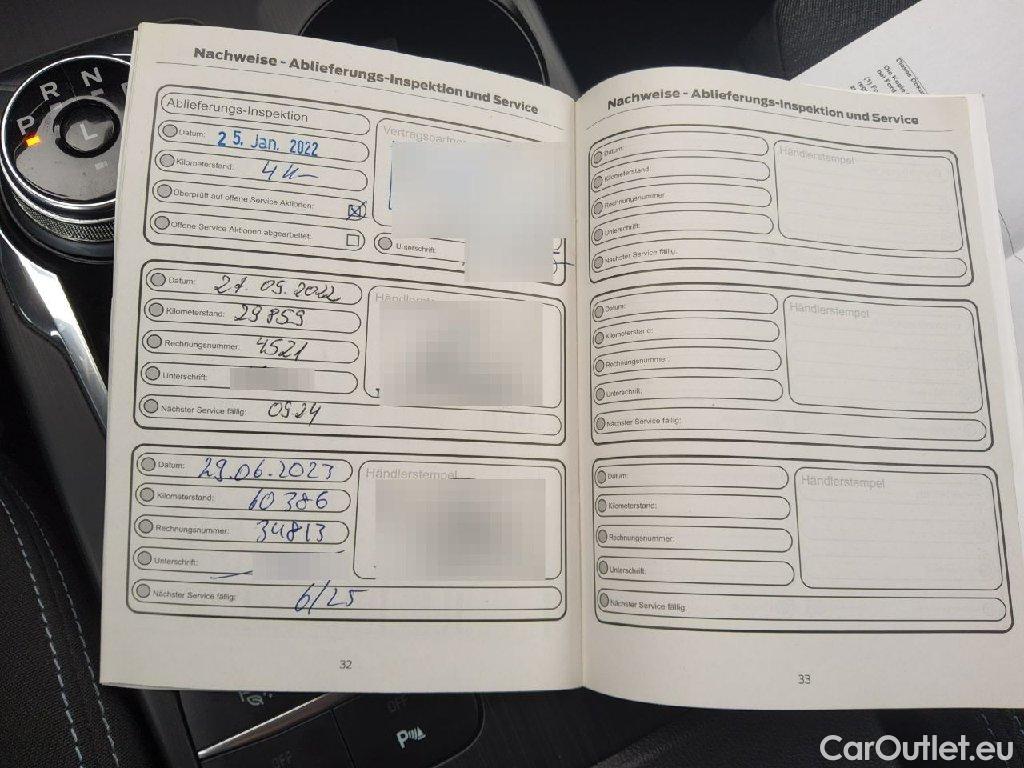 Nachweise - Ablieferungs-Inspektion und Service
Ablieferungs-Inspektion
Vertragspartner
Datum: 25. Jan. 2022
Kilometerstand: 4 k
Überprüft auf offene Service Aktionen:
Offene Service Aktionen abgearbeitet:
Unterschrift:
Datum: 21.09.2022
Händlerstempel
Kilometerstand: 29859
Rechnungsnummer: 4521
Unterschrift:
Nächster Service fällig: 0924
Datum: 29.06.2023
Händlerstempel
Kilometerstand: 60386
Rechnungsnummer: 34813
Unterschrift:
Nächster Service fällig: 6/25
32
Nachweise - Ablieferungs-Inspektion und Service
Datum:
Händlerstempel
Kilometerstand:
Rechnungsnummer:
Unterschrift:
Nächster Service fällig:
Datum:
Händlerstempel
Kilometerstand:
Rechnungsnummer:
Unterschrift:
Nächster Service fällig:
Datum:
Händlerstempel
Kilometerstand:
Rechnungsnummer:
Unterschrift:
Nächster Service fällig:
33
P R N
L
OFF
OFF
CarOutlet.eu